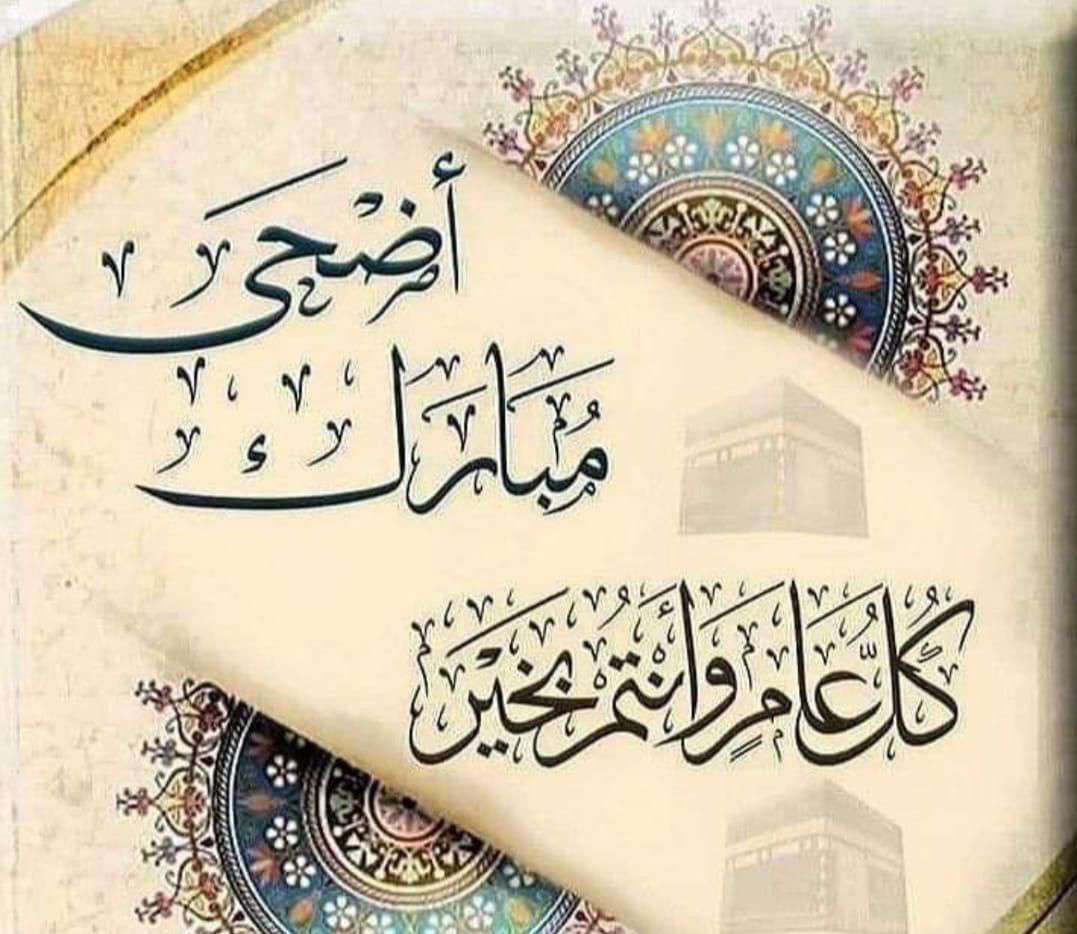 أَضْحَى
مُبَارَك
كُلُّ عَامٍ وَأَنتُمْ بِخَيْر